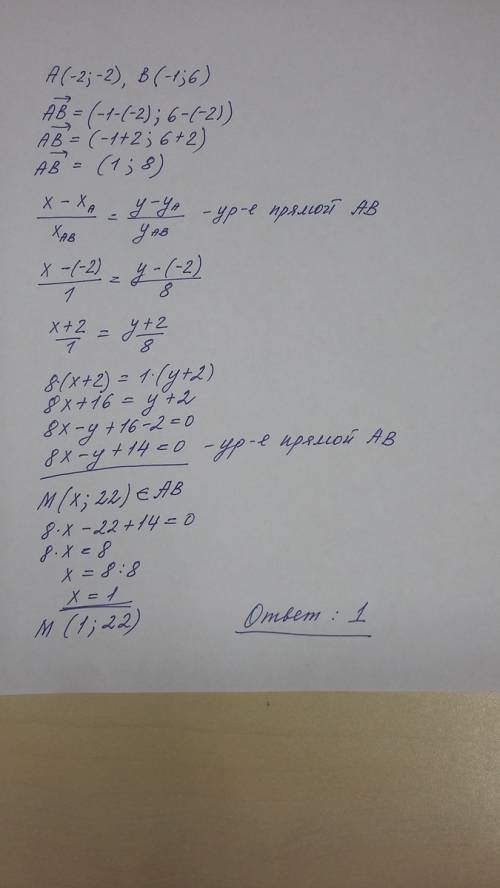 A(-2;-2), B(-1;6)
AB = (-1-(-2); 6-(-2))
AB = (-1+2; 6+2)
AB = (1; 8)
x - x_A / x_AB = y - y_A / y_AB - ур-е прямой AB
x - (-2) / 1 = y - (-2) / 8
x+2 / 1 = y+2 / 8
8(x+2) = 1·(y+2)
8x+16 = y+2
8x-y+16-2=0
8x-y+14=0 - ур-е прямой AB
M(x; 22) ∈ AB
8·x-22+14=0
8·x = 8
x = 8:8
x = 1
M (1; 22)
Ответ: 1